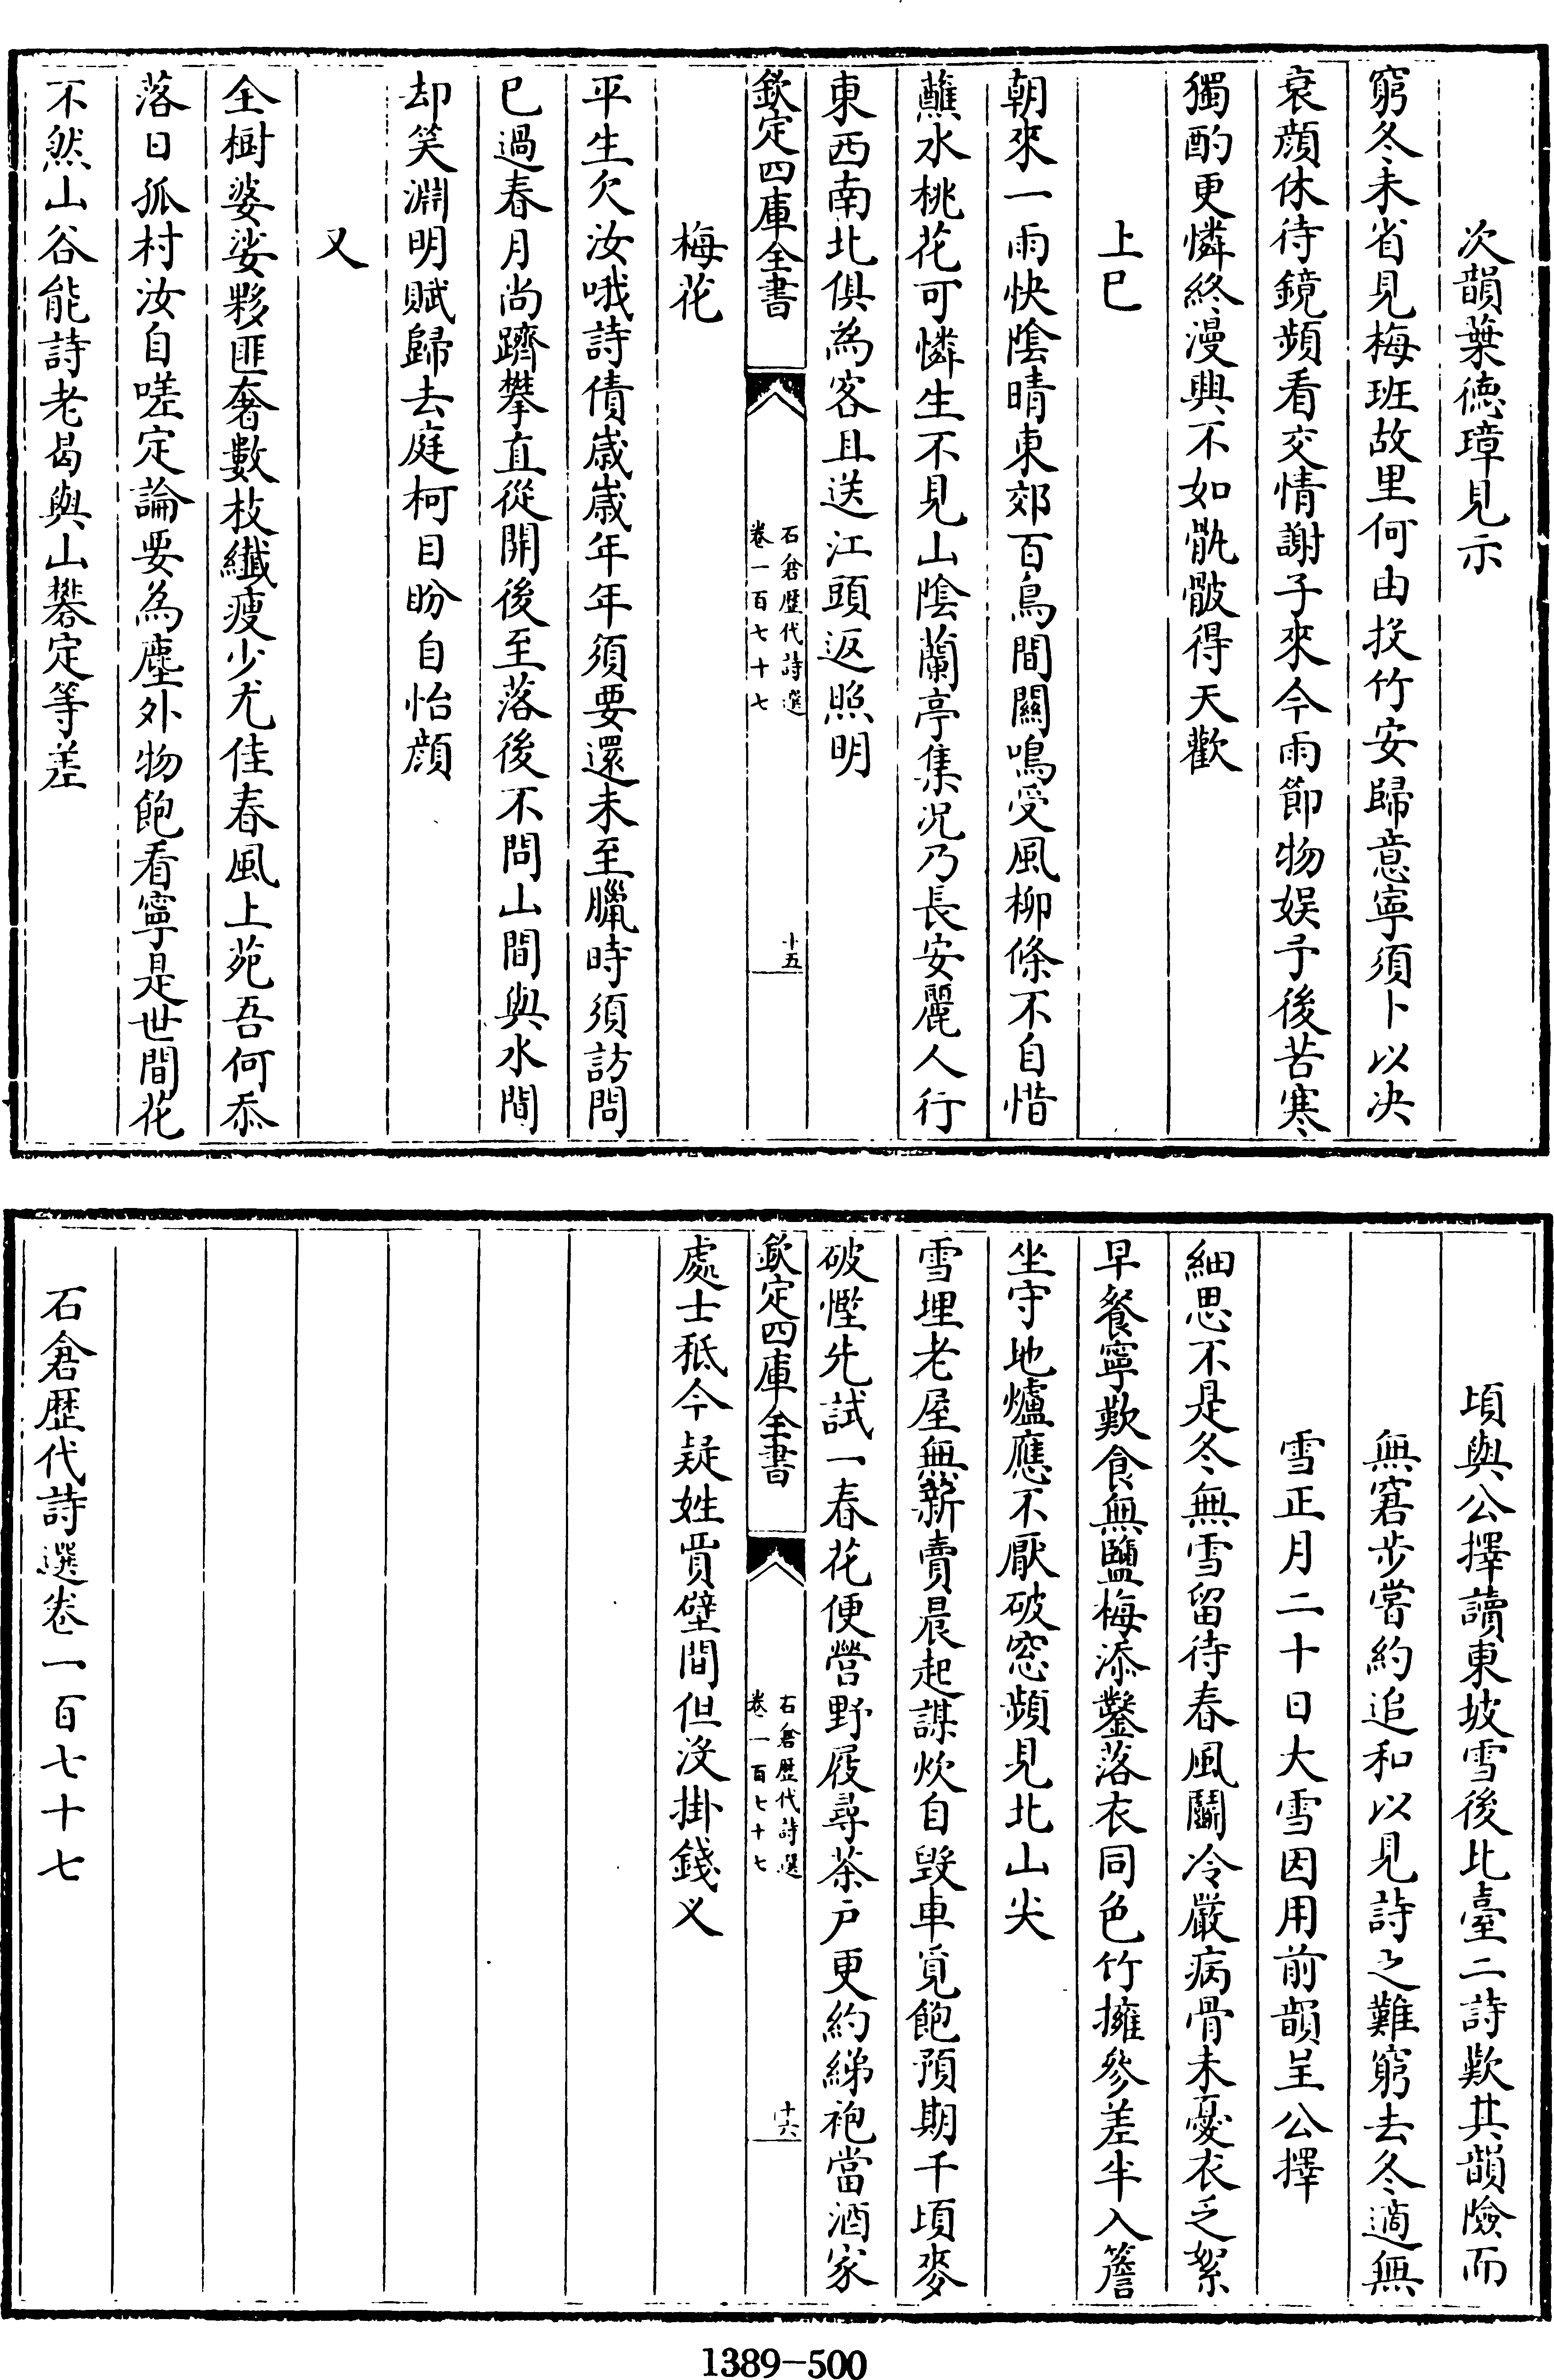 次韻葉徳璋見示
窮冬未省見梅班故里何由投竹安歸意寧須卜以决
衰顔休待鏡頻看交情謝子來今雨節物娱予後苦寒
獨酌更憐終漫興不如骫骳得天歡
上巳
朝來一雨快陰晴東郊百鳥間關鳴受風柳條不自惜
蘸水桃花可憐生不見山陰蘭亭集况乃長安麗人行
東西南北俱為客且送江頭返照明
欽定四庫全書
石倉歴代詩選
卷一百七十七
十五
梅花
平生欠汝哦詩債歳歳年年須要還未至臘時須訪問
已過春月尚躋攀直從開後至落後不問山間與水間
却笑淵明賦歸去庭柯目盼自怡顔
又
全樹婆娑夥匪奢數枝纎瘦少尤佳春風上苑吾何忝
落日孤村汝自嗟定論要為塵外物飽看寧是世間花
不然山谷能詩老曷與山礬定等差
頃與公擇讀東坡雪後北臺二詩歎其韻險而
無窘步嘗約追和以見詩之難窮去冬適無
雪正月二十日大雪因用前韻呈公擇
細思不是冬無雪留待春風鬭冷嚴病骨未憂衣乏絮
早餐寧歎食無鹽梅添鑿落衣同色竹擁參差半入簷
坐守地爐應不厭破窓頻見北山尖
雪埋老屋無薪賣晨起謀炊自毁車覓飽預期千頃麥
破慳先試一春花便營野屐尋茶户更約綈袍當酒家
欽定四庫全書
石倉歴代詩選
卷一百七十七
十六
處士秪今疑姓賈壁間但没掛錢乂
石倉歴代詩選卷一百七十七
1389-500